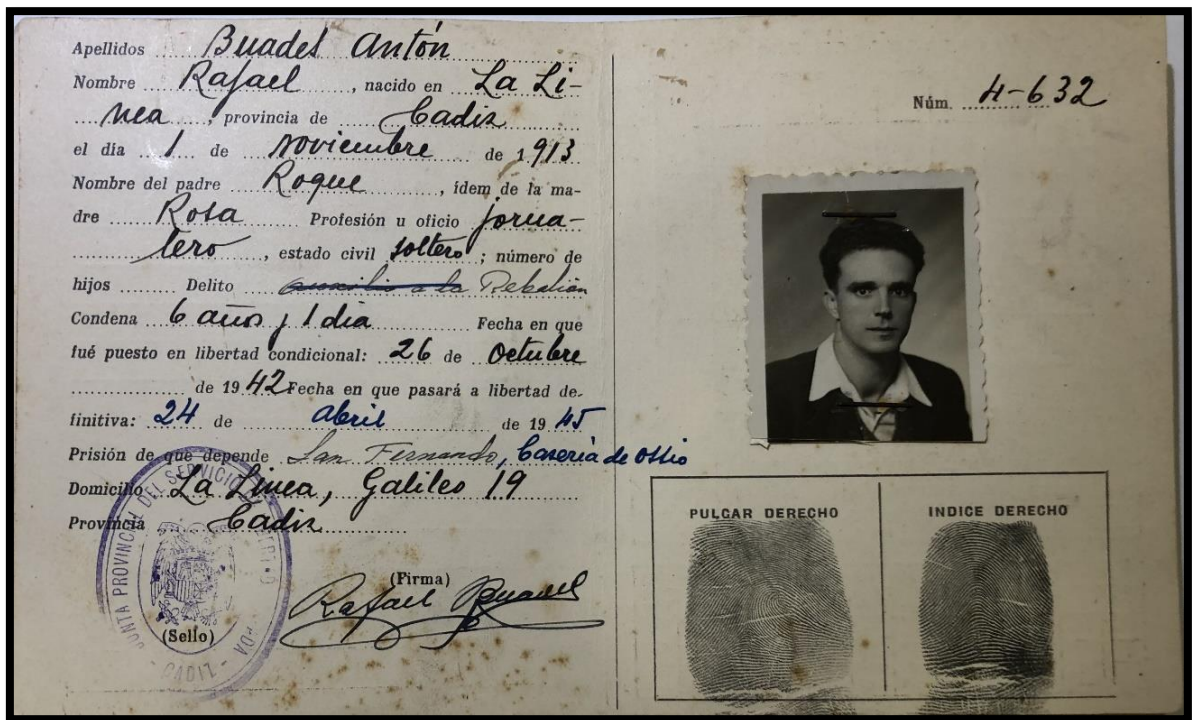 Apellidos Buades Antón
Nombre Rafael, nacido en La Li-
nea, provincia de Cadiz
el día 1 de noviembre de 1913
Nombre del padre Roque, ídem de la ma-
dre Rosa Profesión u oficio jorna-
lero, estado civil soltero; número de
hijos Delito auxilio a la Rebelión
Condena 6 años y 1 dia Fecha en que
fué puesto en libertad condicional: 26 de Octubre
de 1942 Fecha en que pasará a libertad de-
finitiva: 24 de abril de 1945
Prisión de que depende San Fernando, Caseria de Ossio
Domicilio La Linea, Galileo 19
Provincia Cadiz
(Firma)
Rafael Buades
(Sello)
JUNTA PROVINCIAL DEL SERVICIO
CADIZ
Núm. 4-632
PULGAR DERECHO
INDICE DERECHO